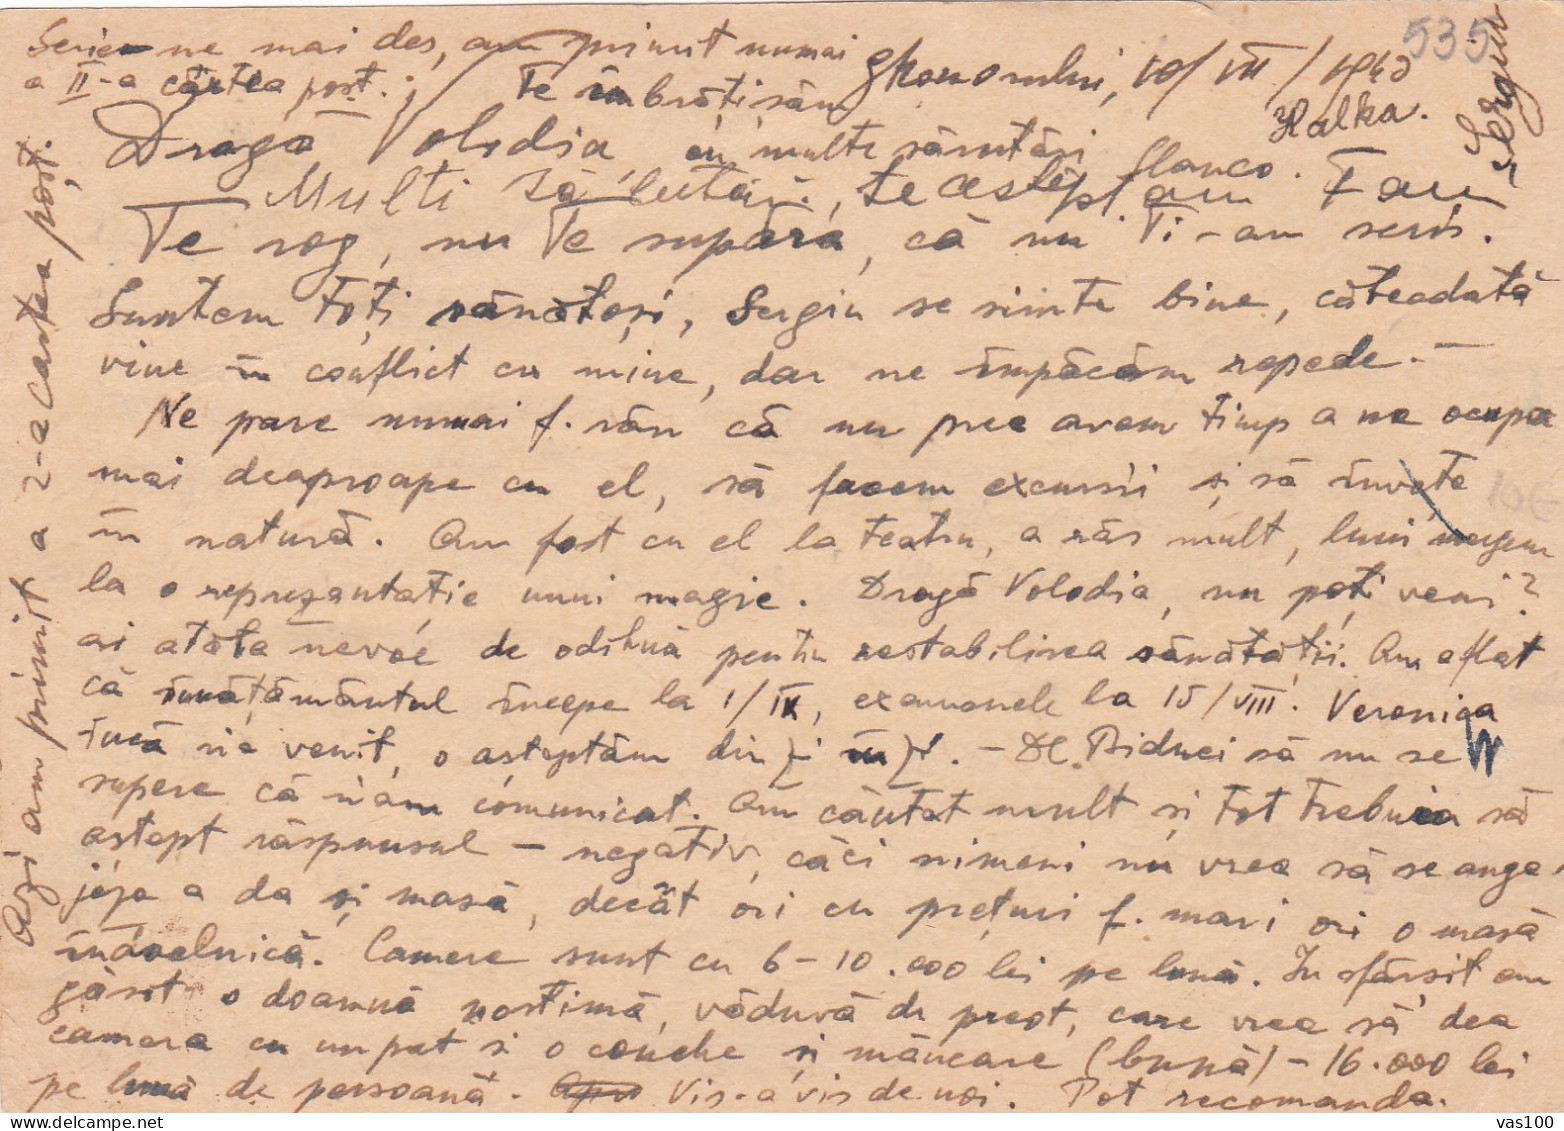 ne mai des, am primit numai
a II-a cartea post.;
Te îmbrățișăm
cu multe sărutări
Gh. Homorului, 10/VII/1943
535
Halka.
Sergiu
Dragă Volodia,
Multi Sălutări, te asteptam
Te rog, nu Te supăra, că nu Ti-am scris.
Suntem toți sănătoși, Sergiu se simte bine, câteodată
vine în conflict cu mine, dar ne împăcăm repede. —
Ne pare numai f. rău că nu prea avem timp a ne ocupa
mai deaproape cu el, să facem excursii și să învețe
în natură. Am fost cu el la teatru, a râs mult, luni mergem
la o reprezantație unui magic. Dragă Volodia, nu poți veni?
ai atâta nevoe de odihnă pentru restabilirea sănătății. Am aflat
că învățământul începe la 1/IX, examenele la 15/VIII. Veronica
încă n'a venit, o așteptăm din zi în zi. – Dl. Bidnei să nu se
supere că n'am comunicat. Am căutat mult și tot trebuia să
aștept răspunsul – negativ, căci nimeni nu vrea să se anga-
jeze a da și masă, decât ori cu prețuri f. mari ori o masă
îndoelnică. Camere sunt cu 6–10.000 lei pe lună. In sfârsit am
găsit o doamnă nostimă, văduvă de preot, care vrea să dea
camera cu un pat si o couche și mâncare (bună) – 16.000 lei
pe lună de persoană. Vis-a-vis de noi. Pot recomanda.
Azi am primit a 2-a cartea poșt.
10€
vas100